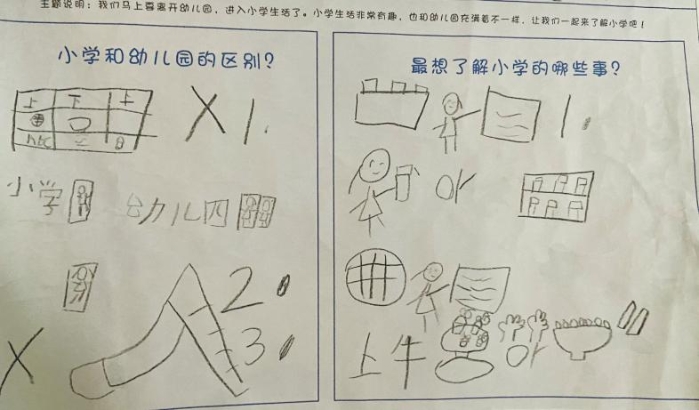 主题说明：我们马上要离开幼儿园，进入小学生活了。小学生活非常有趣，也和幼儿园充满着不一样，让我们一起来了解小学吧！
小学和幼儿园的区别？
上 下 上
ABC
X 1.
小学
幼儿四
2
3
X
最想了解小学的哪些事？
1.
or
上牛
or